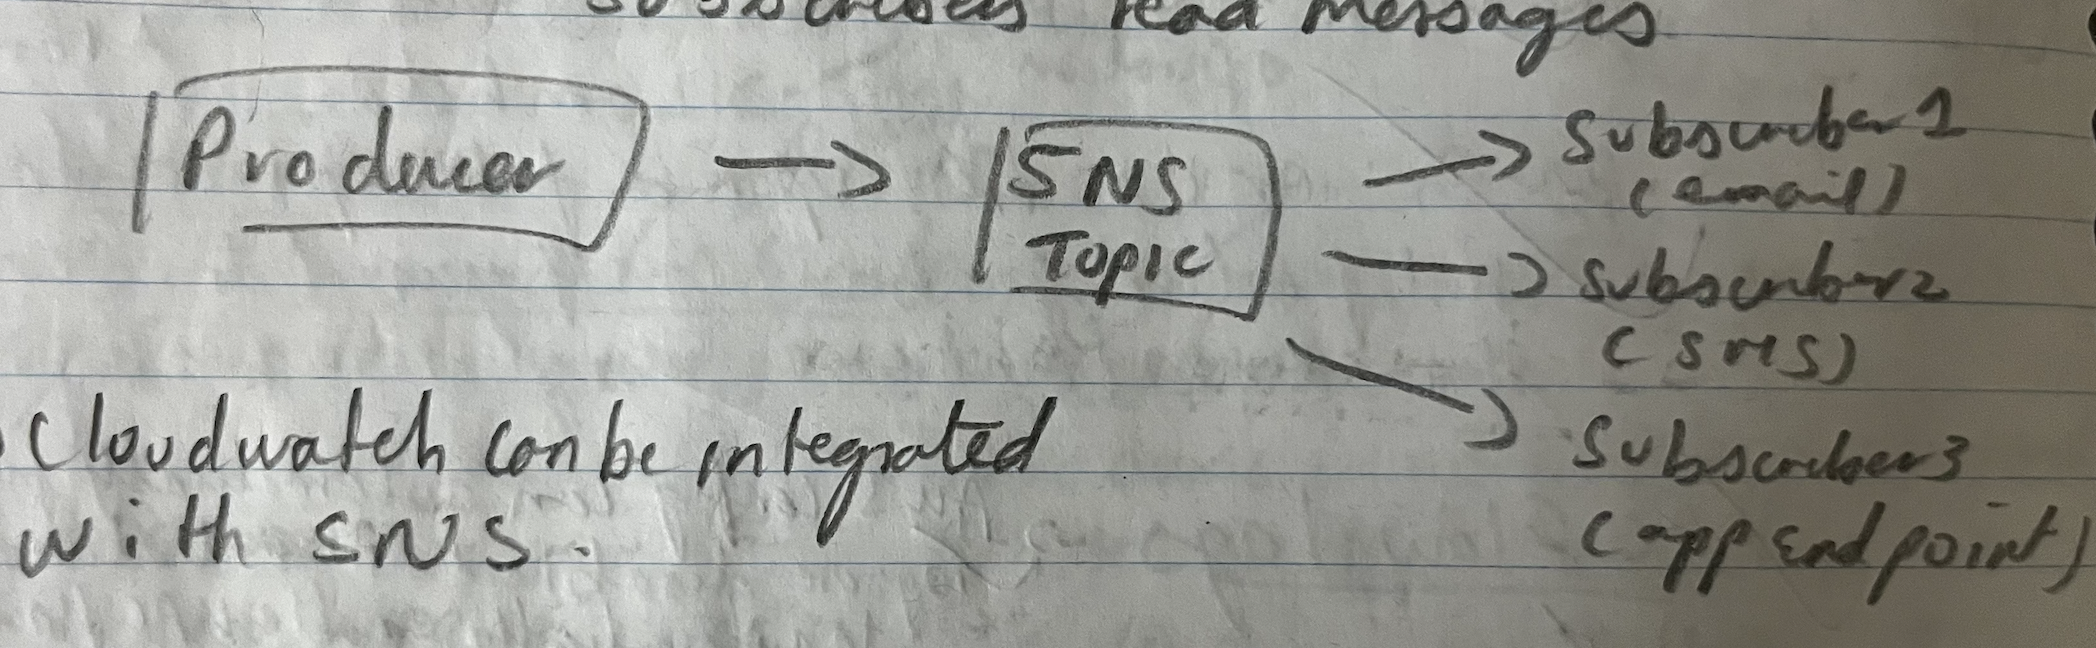 Subscribers read messages
Producer → SNS Topic
→ Subscriber 1
(email)
→ Subscriber 2
(SMS)
→ Subscriber 3
(app Endpoint)
Cloudwatch can be integrated
with SNS.